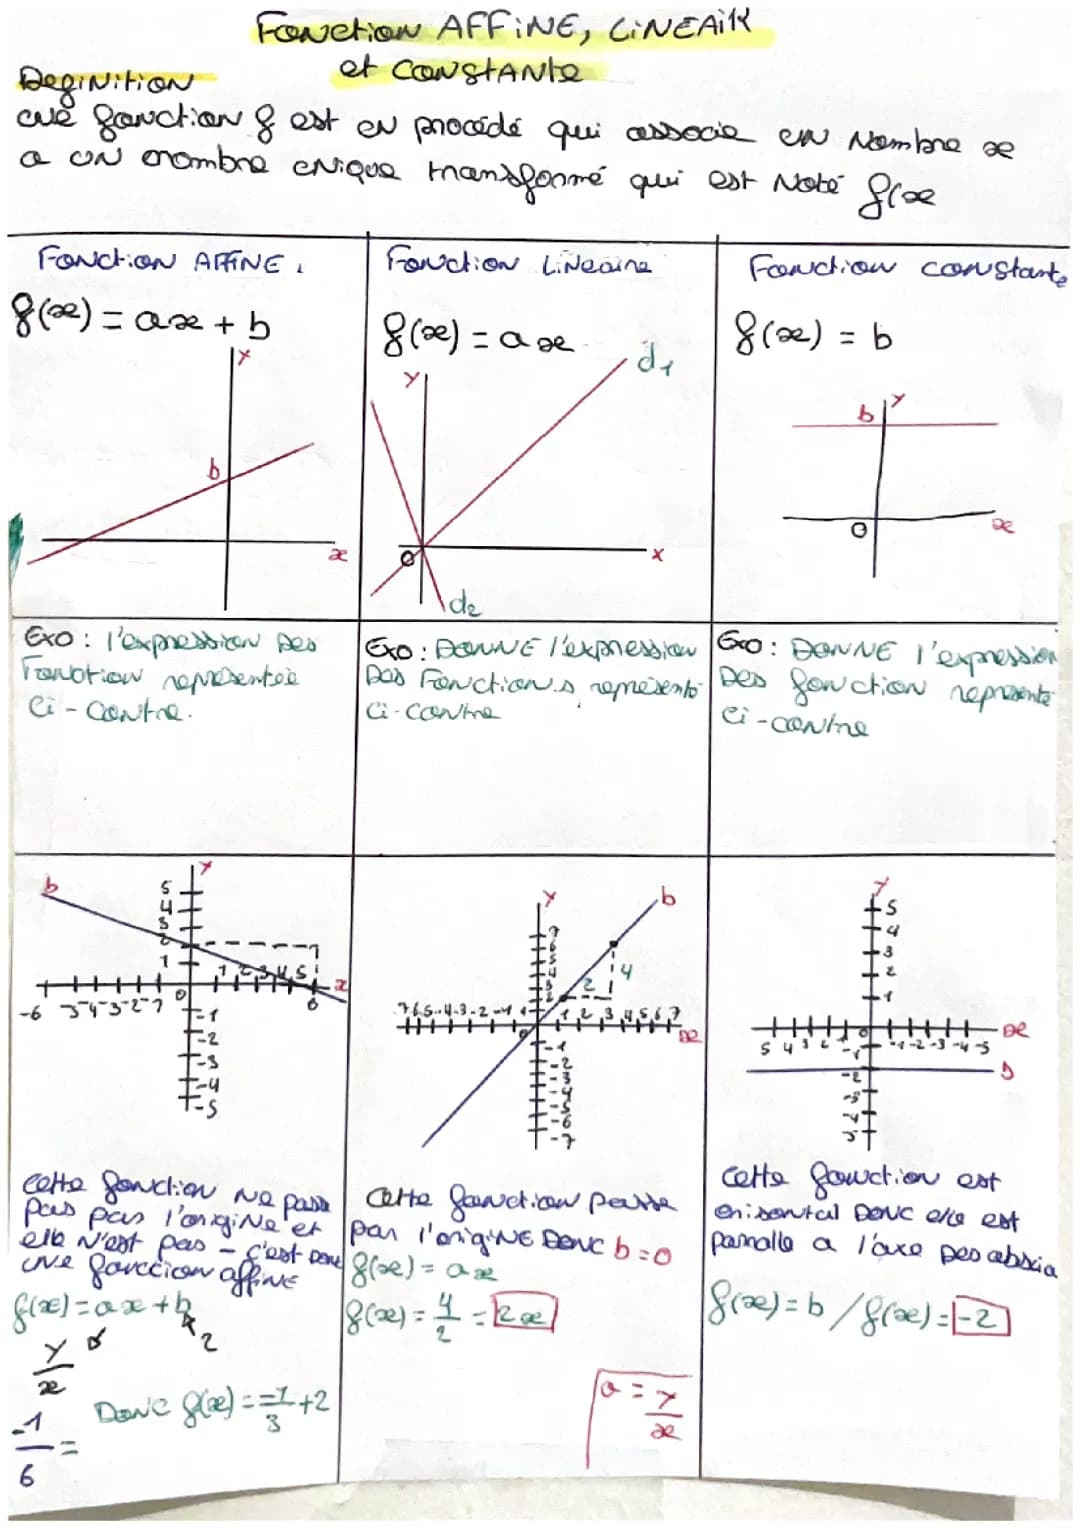 Fonction AFFiNE, LiNEAiR
et constante
Definition
une fonction f est un procédé qui associe un Nombre x
a un nombre unique transformé qui est Noté f(x
Fonction AFFINE.
f(x) = ax + b
y
b
x
Fonction Lineaire
f(x) = ax
d1
y
0
x
d2
Fonction constante
f(x) = b
b
y
0
x
Exo : l'expression Des
Fonction représentée
Ci-contre.
Exo : DONNE l'expression
Des Fonctions, représenté
Ci-contre
Exo : DONNE l'expression
Des fonction représente
Ci-contre
b
y
5
4
3
2
1
1 2 3 4 5
x
-6 -5-4-3-2-1
0
6
-1
-2
-3
-4
-5
y
b
7
6
5
4
3
2
4
2
7 6.5.-4.-3.-2 -1 1
1 2 3 4 5 6 7
x
-1
-2
-3
-4
-5
-6
-7
y
5
4
3
2
1
x
5 4 3 2 1 0
-1 -2 -3 -4 -5
-1
-2
-3
-4
5
D
Cette fonction Ne passe
pas par l'origine et
elle N'est pas - c'est Donc
une fonction affine
f(x) = ax + b
2
y
x
Donc f(x) = -1/3 + 2
-1/6 =
Cette fonction passe
par l'origine Donc b = 0
f(x) = ax
f(x) = 4/2 = 2x
a = y/x
Cette fonction est
orisontal Donc elle est
paralle a l'axe des abscia
f(x) = b / f(x) = -2